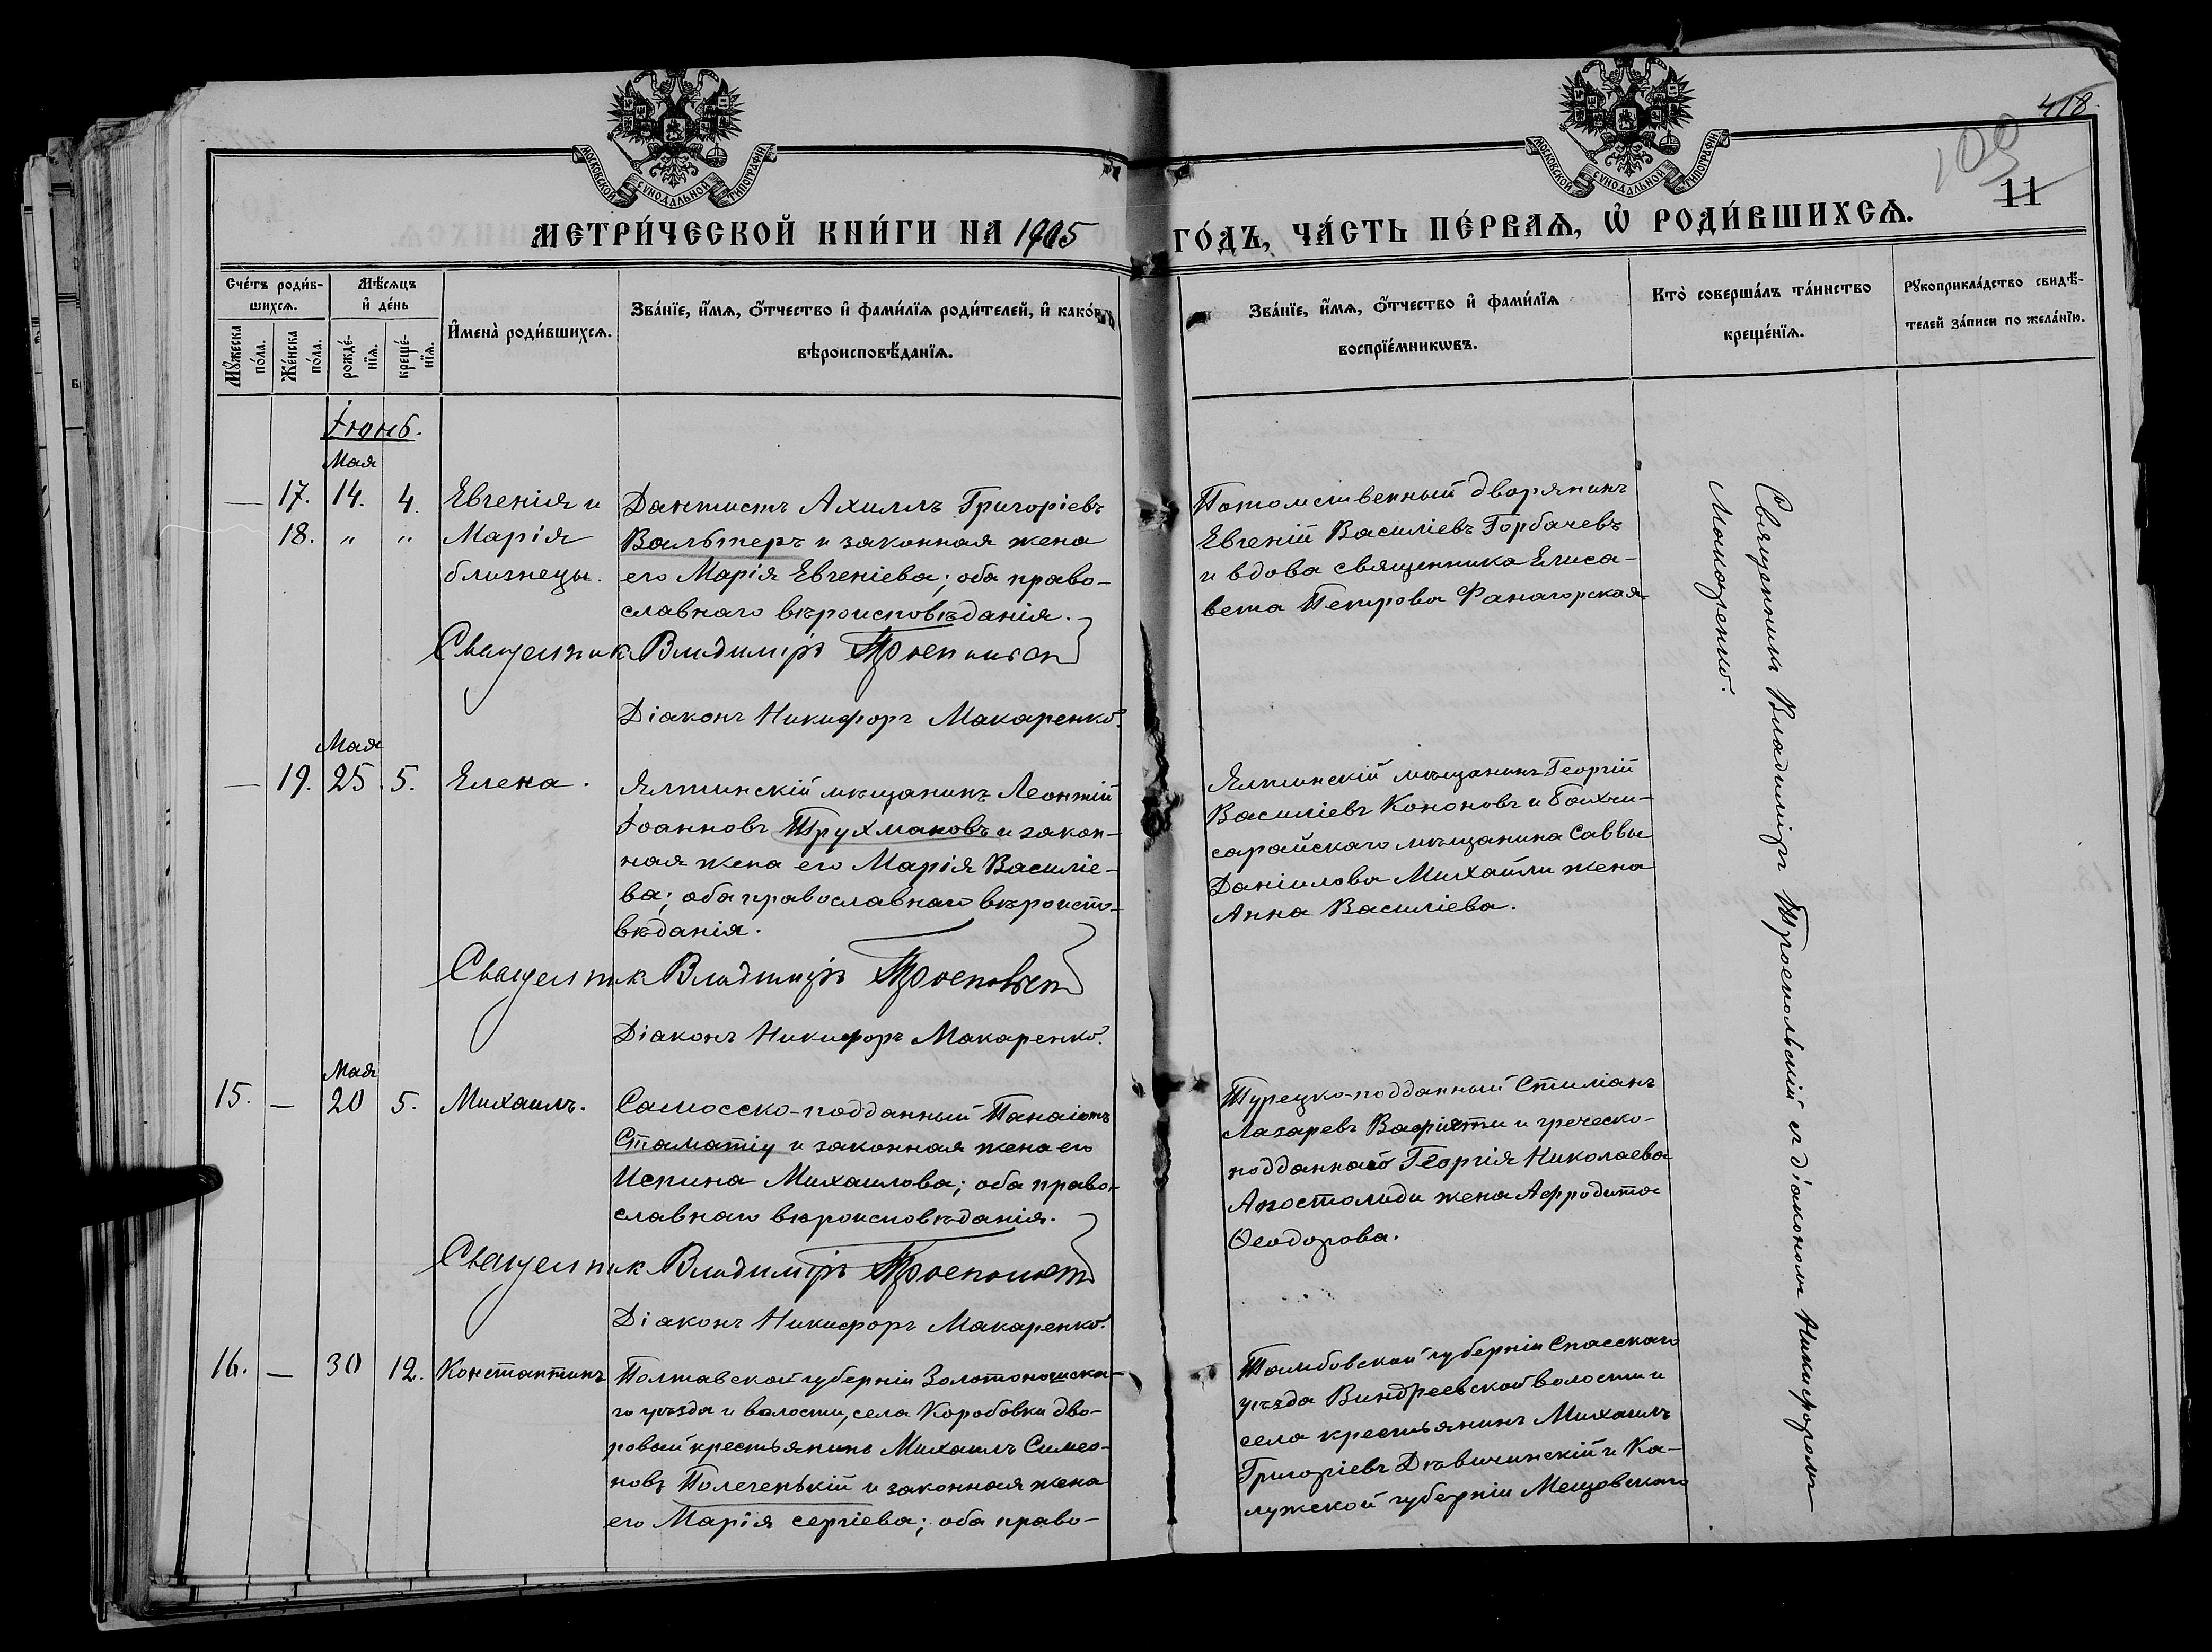 МОСКОВСКОЙ СУНОДАЛЬНОЙ ТИПОГРАФИИ
МОСКОВСКОЙ СУНОДАЛЬНОЙ ТИПОГРАФИИ
418.
109
11
МЕТРИ́ЧЕСКОЙ КНИ́ГИ НА 1905
ГО́ДЪ, ЧА́СТЬ ПЕ́РВАѦ, Ѡ҆ РОДИ́ВШИХСѦ.
Сче́тъ роди́в-
шихсѧ.
Мꙋ́жеска
по́ла.
Же́нска
по́ла.
Мѣ́сѧцъ
и҆ де́нь
рожде́-
нїѧ.
креще́-
нїѧ.
И҆мена̀ роди́вшихсѧ.
Зва́нїе, и҆́мѧ, ѻ҆́тчество и҆ фами́лїѧ роди́телей, и҆ како́гѡ
вѣроисповѣ́данїѧ.
Зва́нїе, и҆́мѧ, ѻ҆́тчество и҆ фами́лїѧ
воспрїе́мникѡвъ.
Кто̀ соверша́лъ та́инство
креще́нїѧ.
Рꙋкоприкла́дство свидѣ́-
телей за́писи по жела́нїю.
Іюнь.
Мая
— 17. 14. 4. Евгенія и
18. " " Марія
близнецы.
Дантистъ Ахиллъ Григоріевъ
Вальтеръ и законная жена
его Марія Евгеніева; оба право-
славнаго вѣроисповѣданія.
Священник Владиміръ Троепольскій
Діаконъ Никифоръ Макаренко.
Потомственный дворянинъ
Евгеній Василіевъ Горбачевъ
и вдова священника Елиса-
вета Петрова Фанагорская
Священникъ Владиміръ Троепольскій съ діакономъ Никифоромъ
Макаренко.
Мая
— 19. 25. 5. Елена.
Ялтинскій мѣщанинъ Леонтій
Іоанновъ Трухмановъ и закон-
ная жена его Марія Василіе-
ва; оба православнаго вѣроиспо-
вѣданія.
Священник Владиміръ Троепольскій
Діаконъ Никифоръ Макаренко.
Ялтинскій мѣщанинъ Георгій
Василіевъ Кононовъ и Бахчи-
сарайскаго мѣщанина Саввы
Даніилова Михайли жена
Анна Василіева.
Мая
15. — 20 5. Михаилъ.
Самосско-подданный Панаіотъ
Стаматіу и законная жена его
Испина Михаилова; оба право-
славнаго вѣроисповѣданія.
Священник Владиміръ Троепольскій
Діаконъ Никифоръ Макаренко.
Турецко-подданный Стиліанъ
Лазаревъ Вафіяти и греческо-
подданнаго Георгія Николаева
Апостолиди жена Афродита
Ѳеодорова.
16. — 30 12. Константинъ
Полтавской губерніи Золотоношска-
го уѣзда и волости, села Коробовки дво-
ровый крестьянинъ Михаилъ Симео-
новъ Полегенькій и законная жена
его Марія Сергіева; оба право-
Тамбовской губерніи Спасскаго
уѣзда Виндреевской волости и
села крестьянинъ Михаилъ
Григоріевъ Дѣвичинскій и Ка-
лужской губерніи Мещовскаго